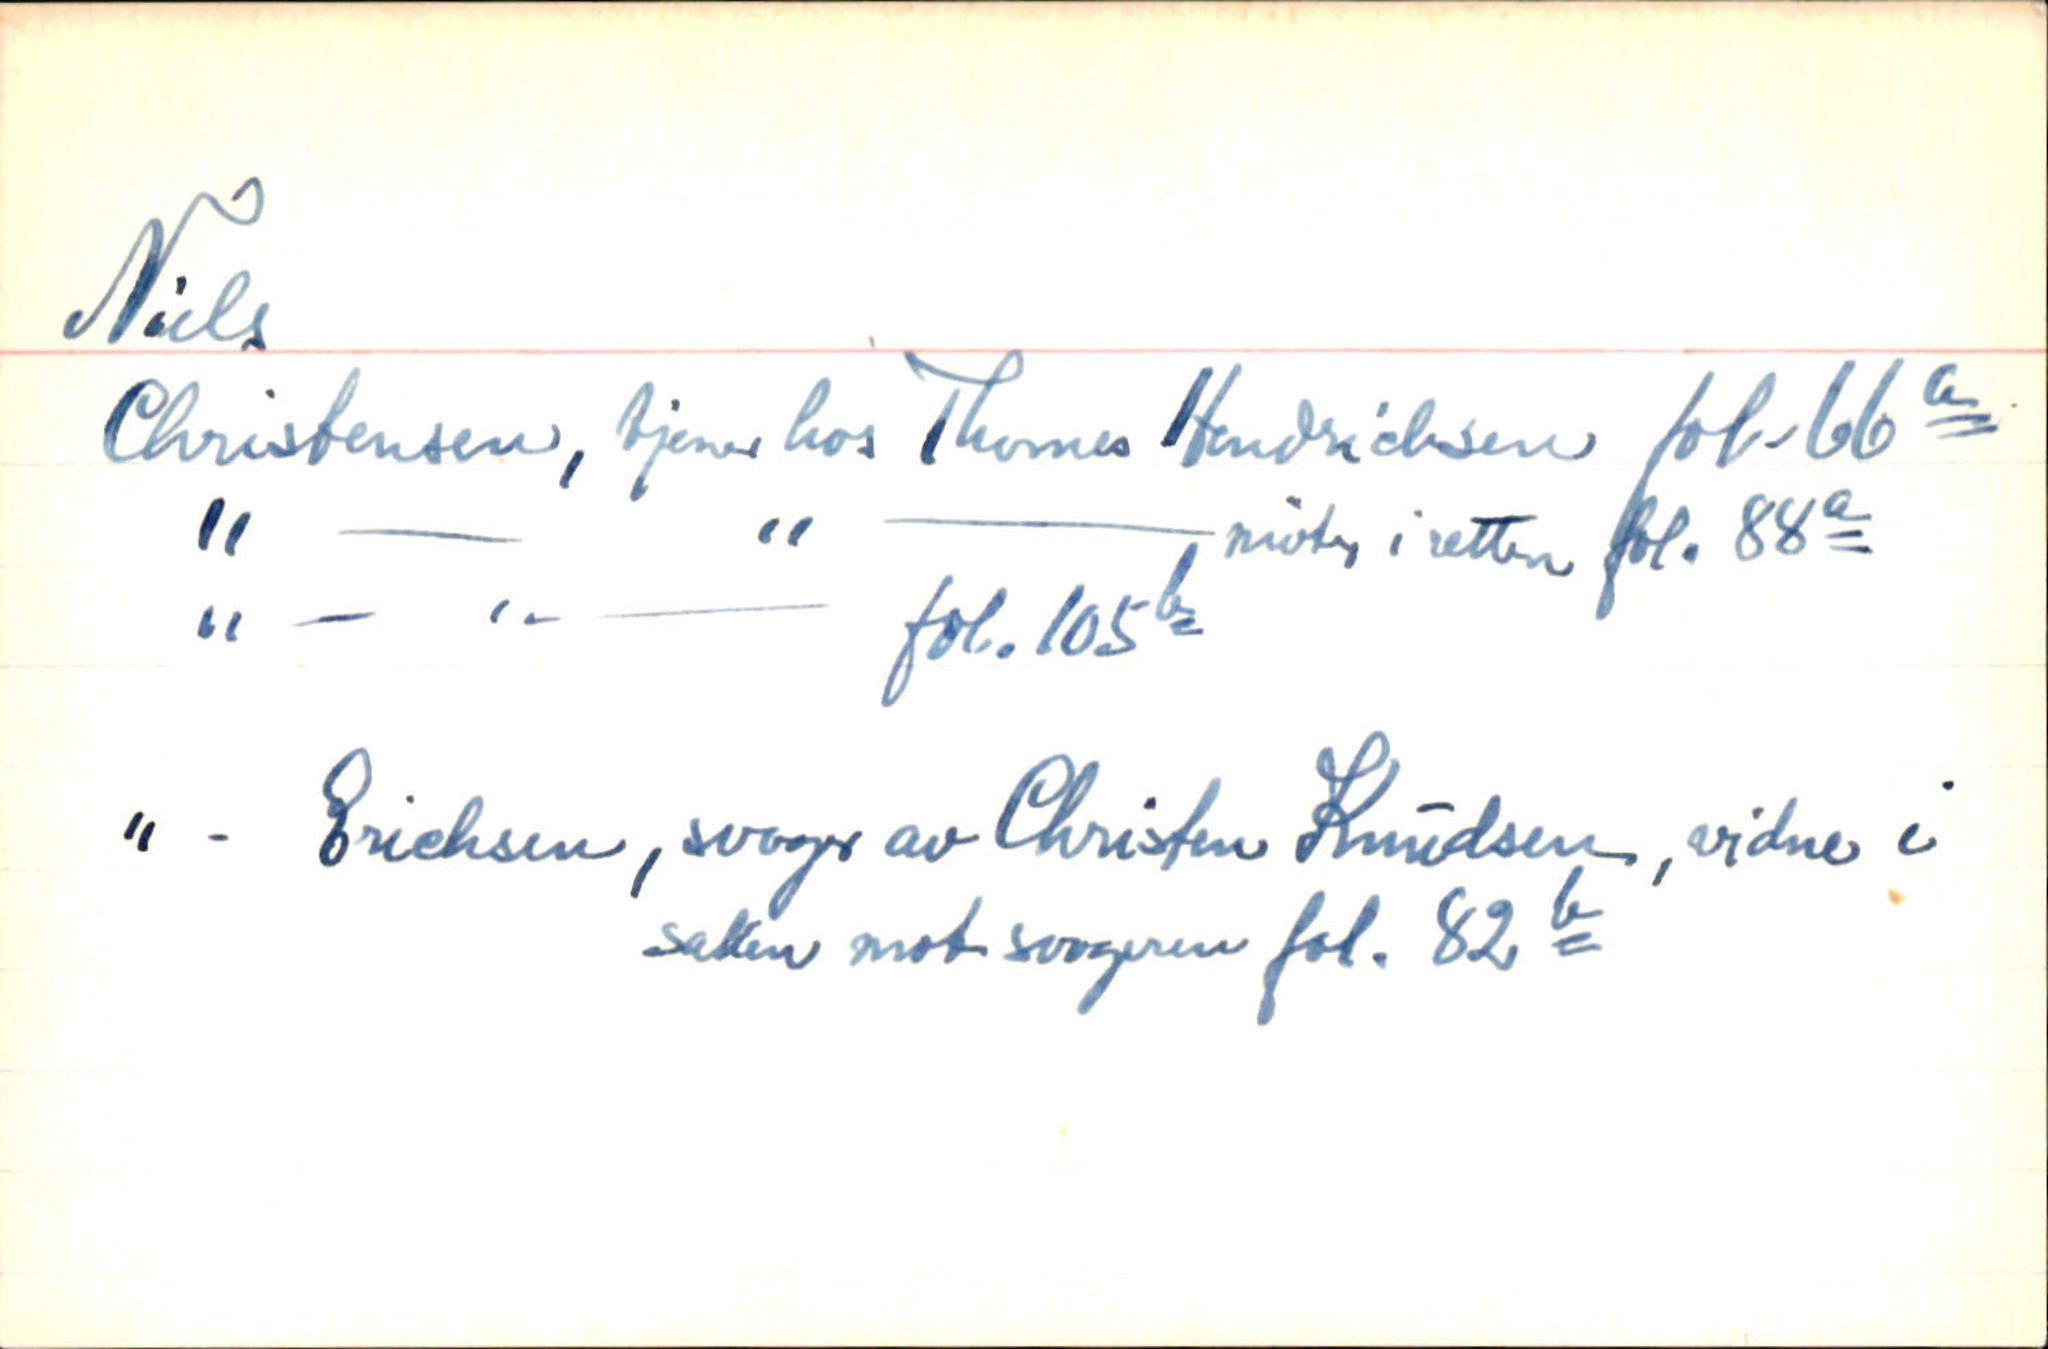 Niels
Christensen, tjener hos Thomes Hendrichsen fol. 66a
" — " — møter i retten fol. 88a
" — " — fol. 105b
" - Erichsen, svoger av Christen Knudsen, vidne i
saken mot svogeren fol. 82b